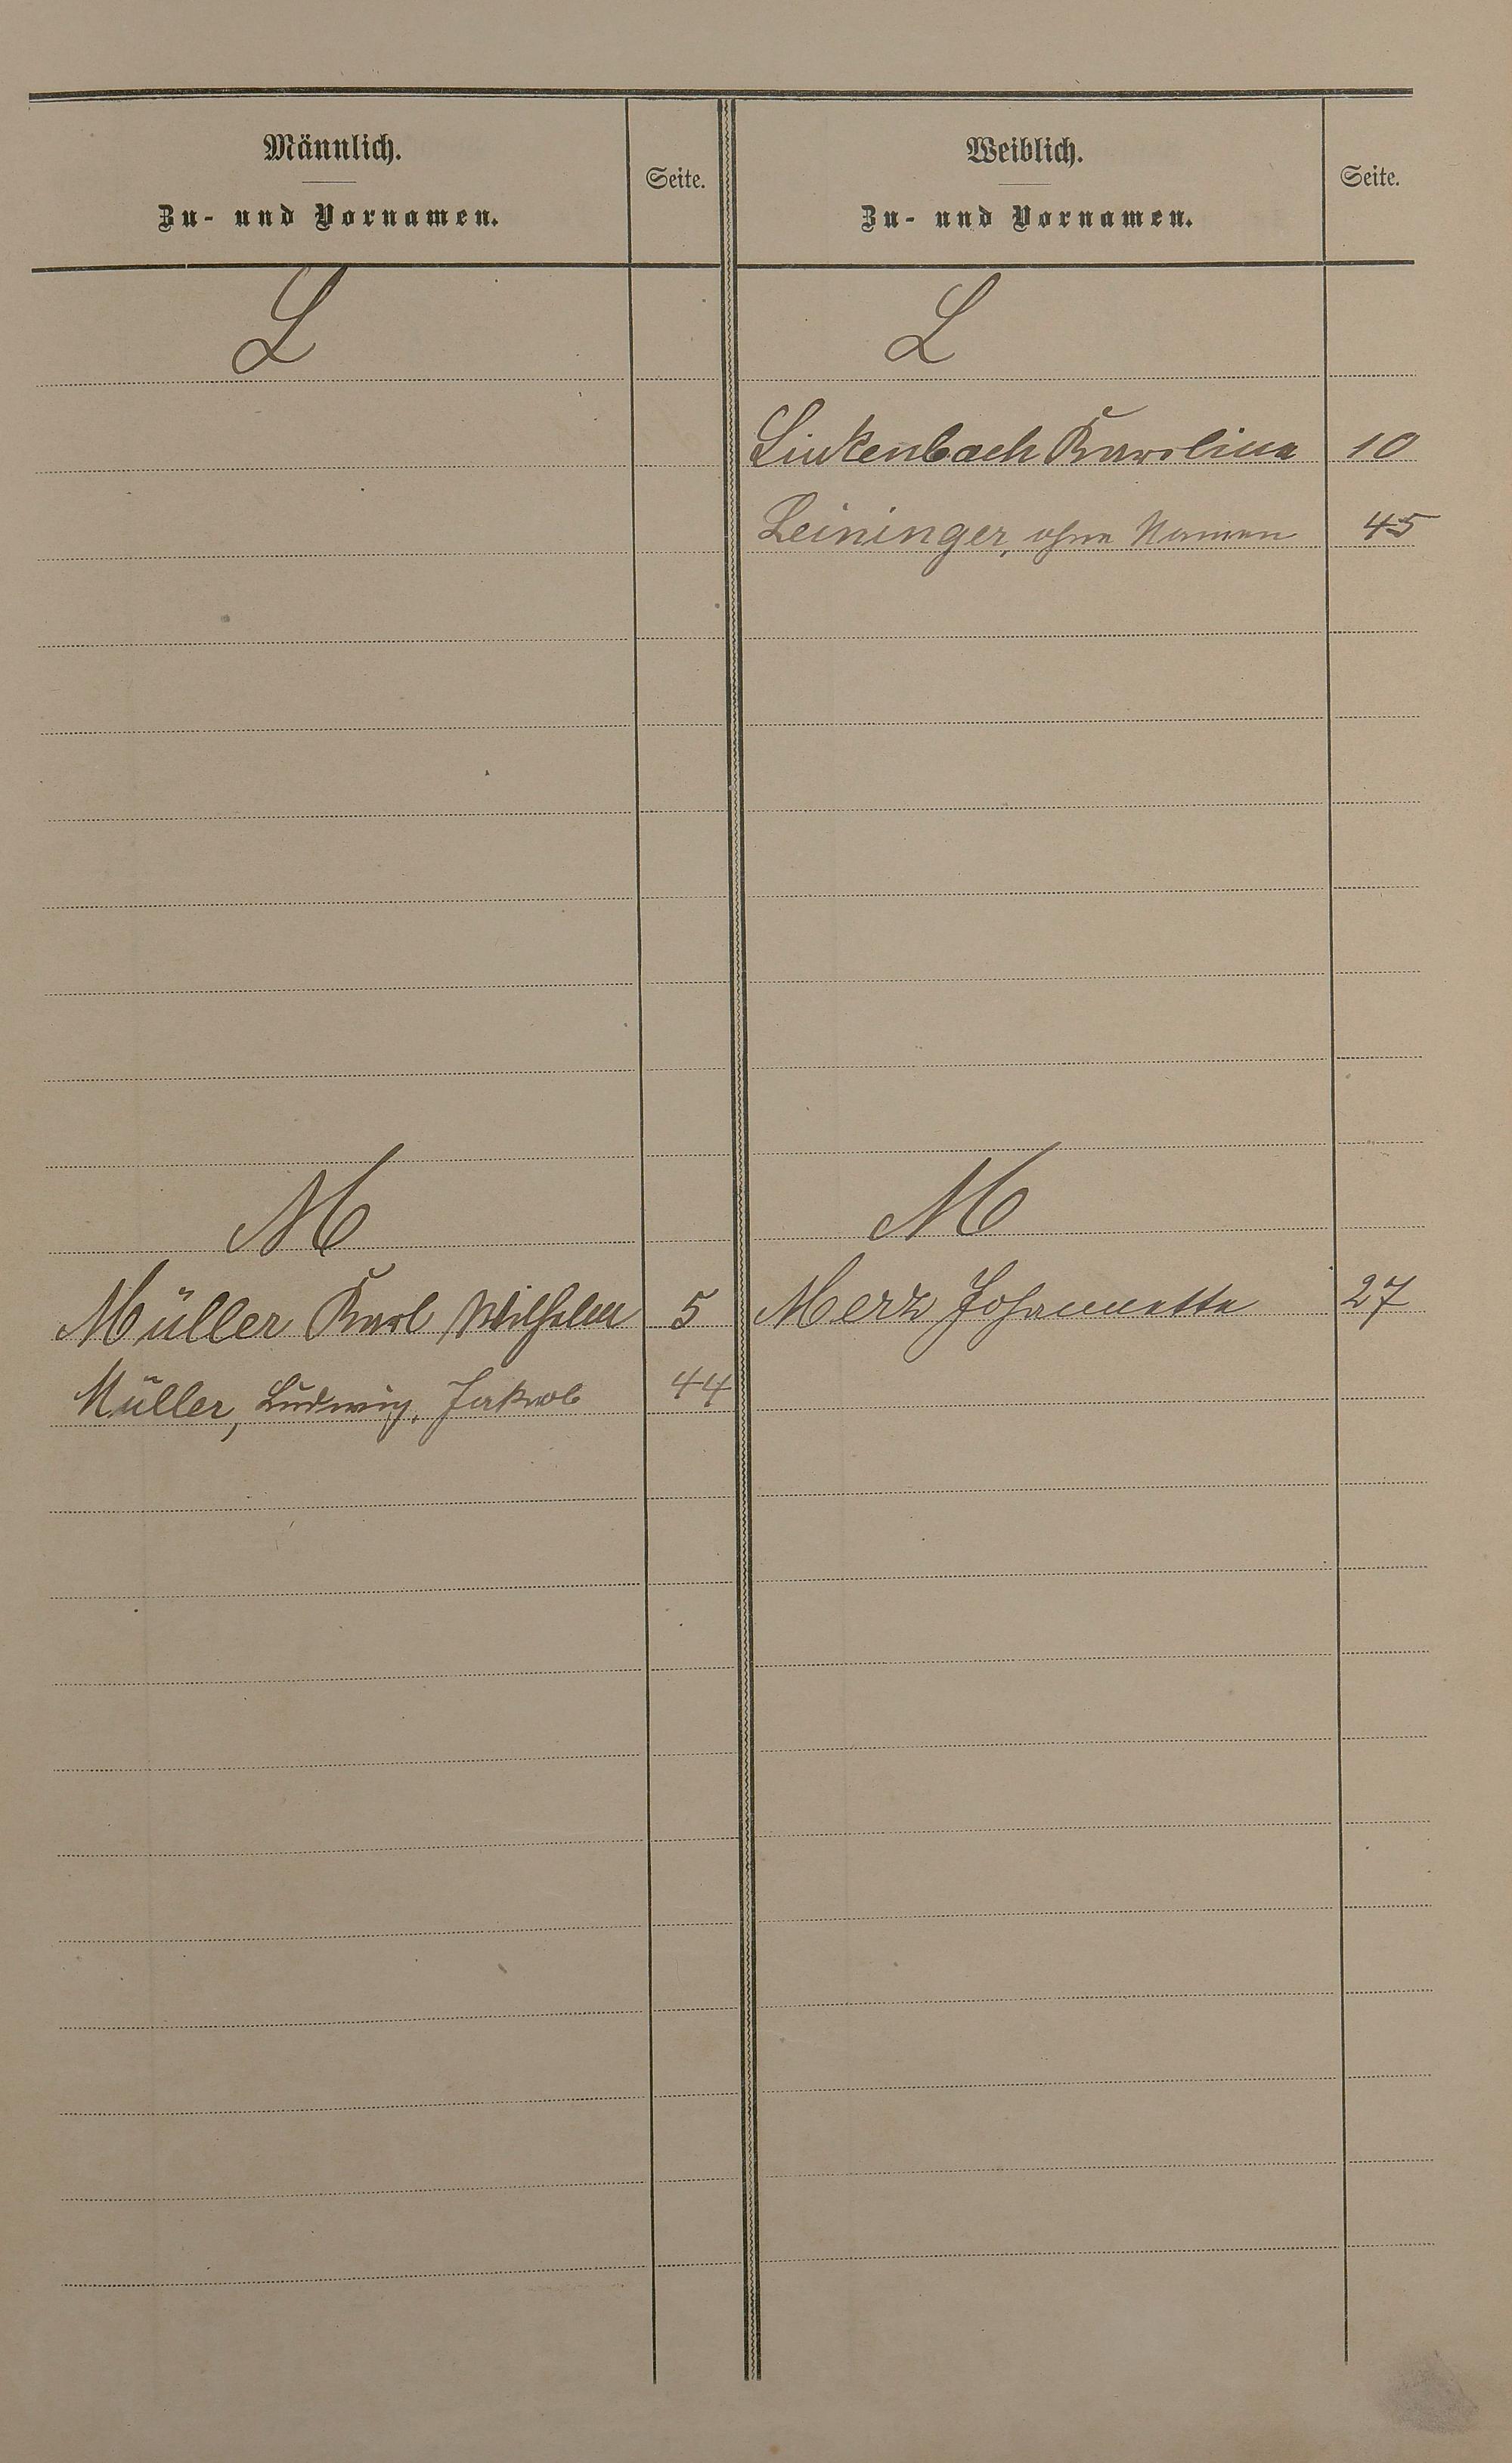 Männlich.
Zu- und Vornamen.
Seite.
Weiblich.
Zu- und Vornamen.
Seite.
L
L
Linkenbach Karolina 10
Leininger, ohne Namen 45
M
M
Müller Karl Wilhelm 5
Merz Johannetta 27
Müller, Ludwig, Jakob 44